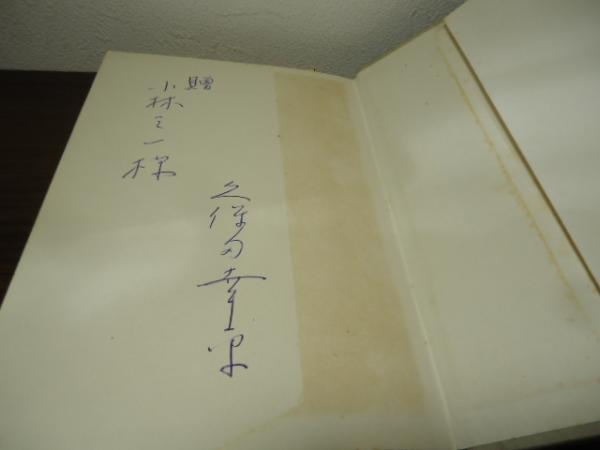 贈
小林三一様
久保田幸平